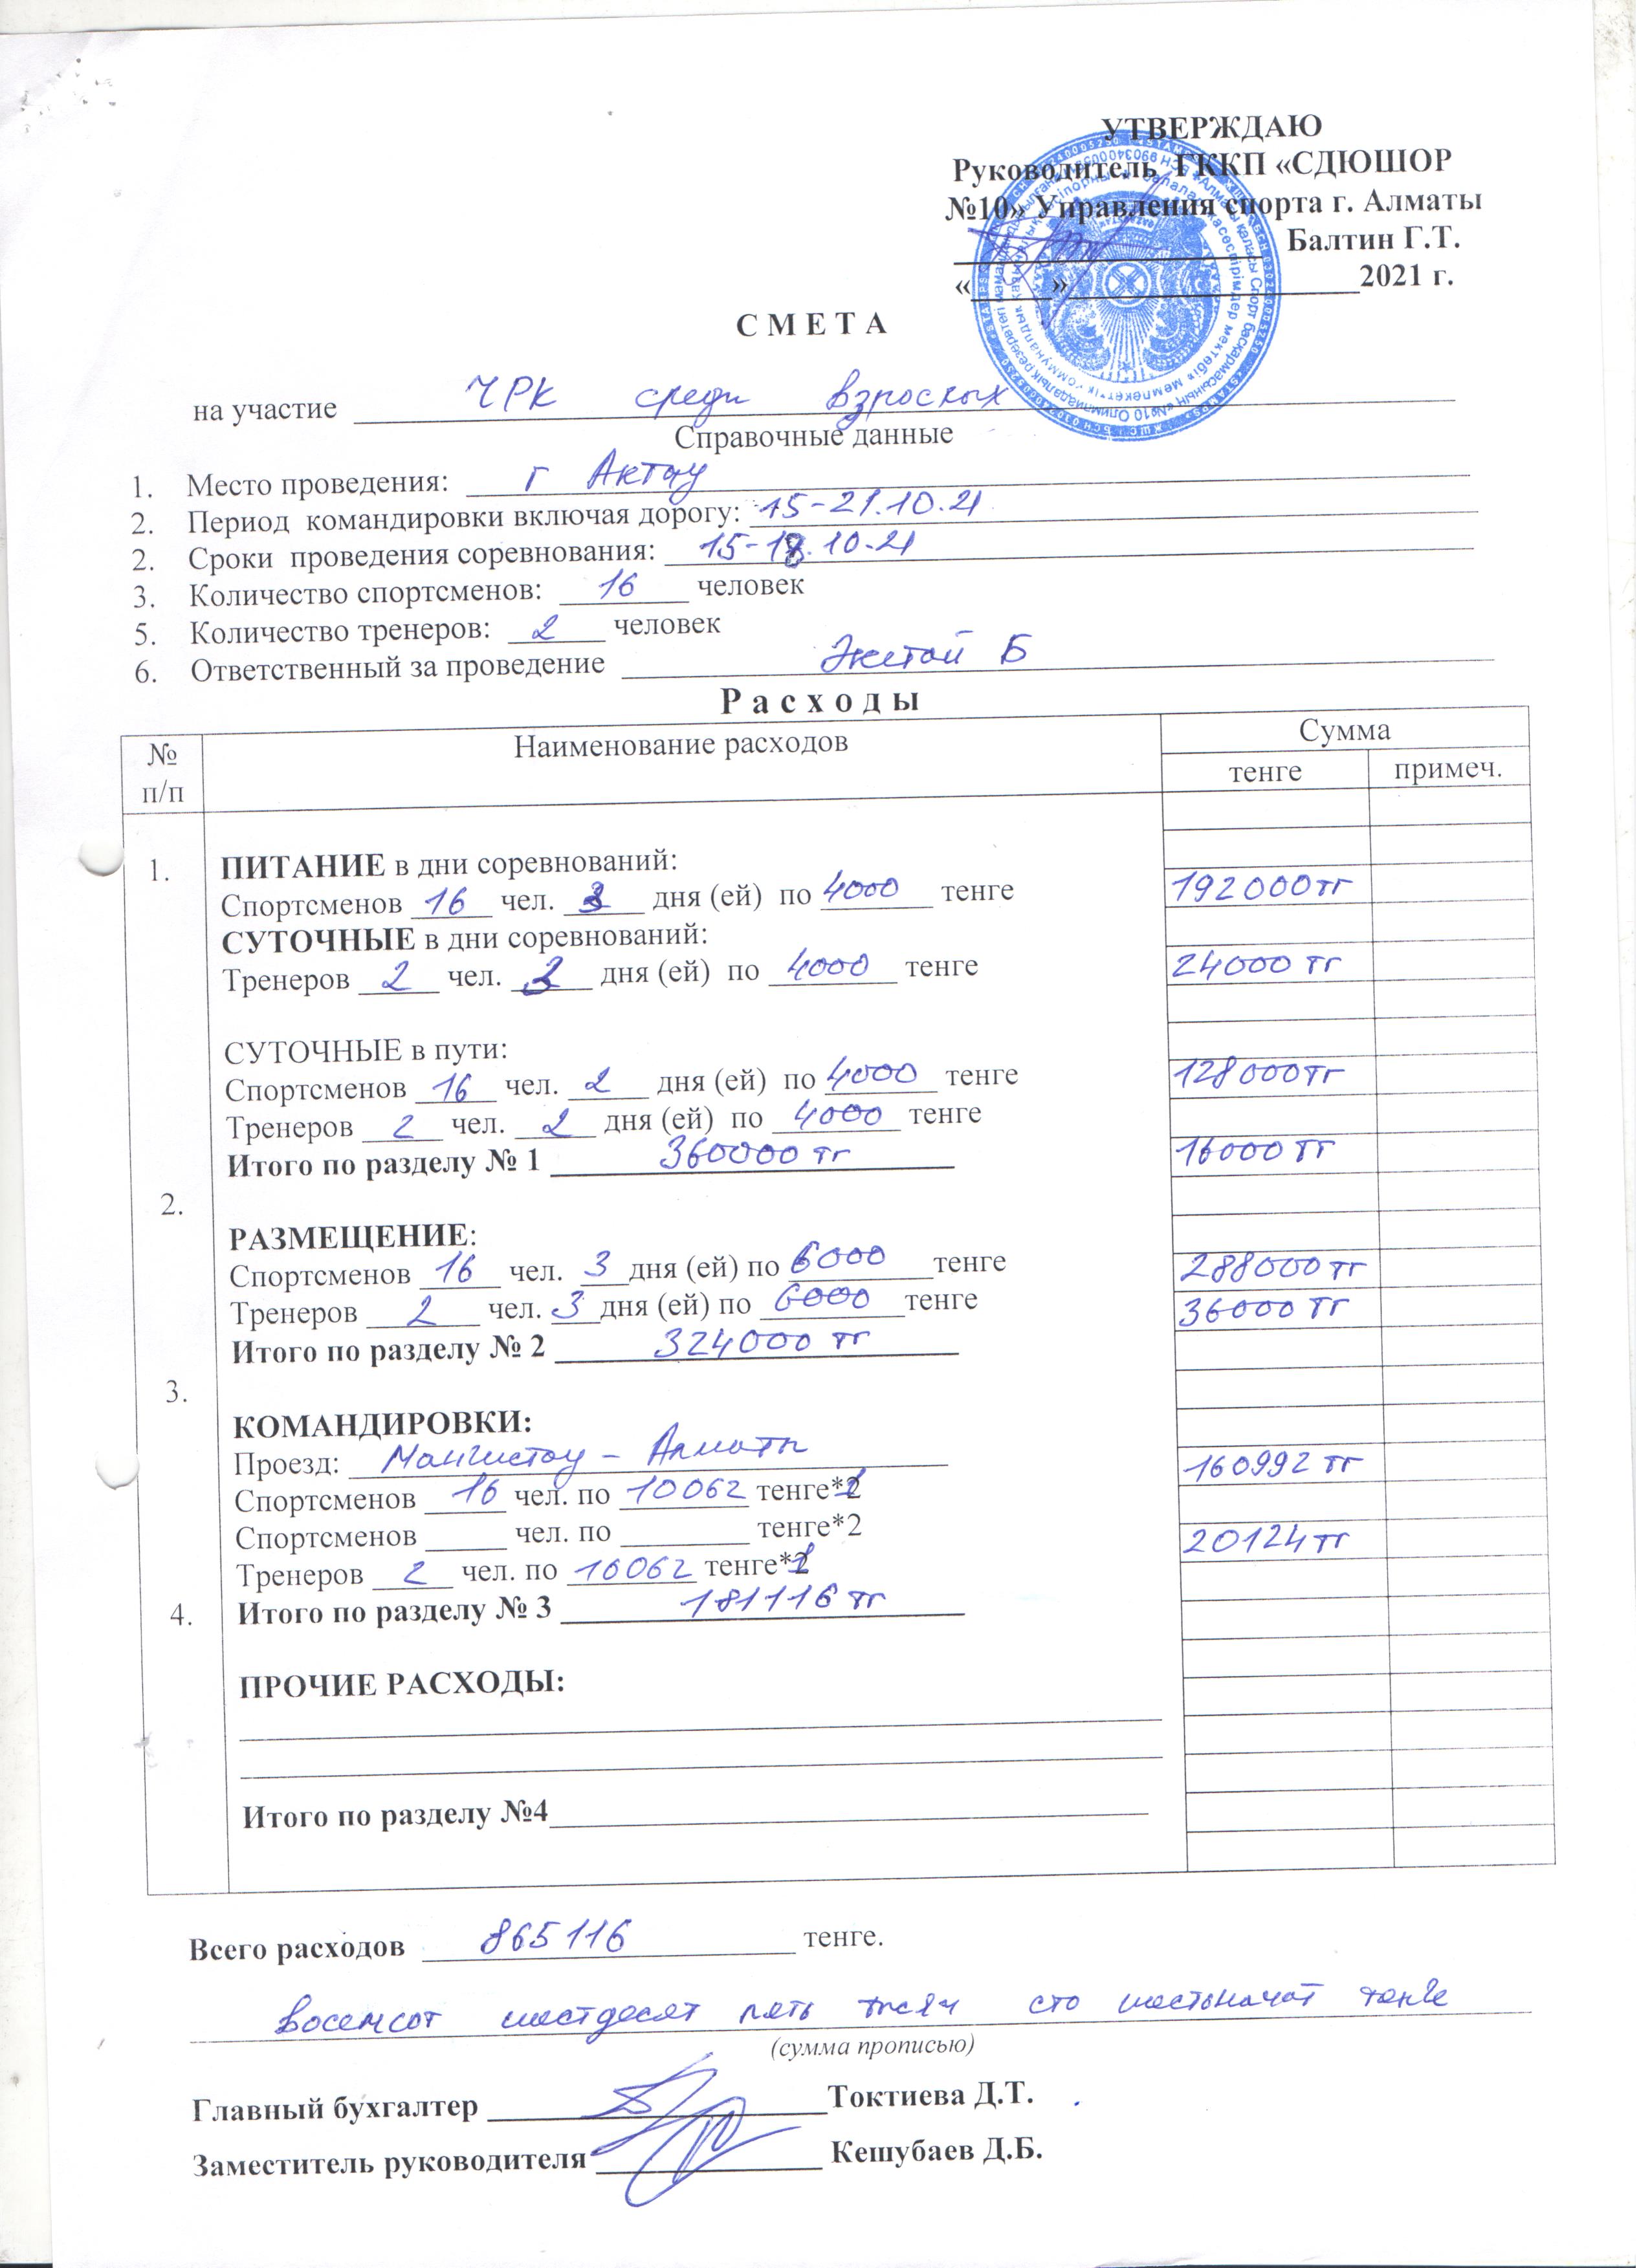 УТВЕРЖДАЮ
Руководитель ГККП «СДЮШОР
№10» Управления спорта г. Алматы
Балтин Г.Т.
«_____»__________________2021 г.
С М Е Т А
на участие ЧРК среди взрослых
Справочные данные
1. Место проведения: г Актау
2. Период командировки включая дорогу: 15-21.10.21
2. Сроки проведения соревнования: 15-18.10.21
3. Количество спортсменов: 16 человек
5. Количество тренеров: 2 человек
6. Ответственный за проведение Б
Р а с х о д ы
№ п/п Наименование расходов Сумма
тенге примеч.
1. ПИТАНИЕ в дни соревнований:
Спортсменов 16 чел. 3 дня (ей) по 4000 тенге 192000 тг
СУТОЧНЫЕ в дни соревнований:
Тренеров 2 чел. 3 дня (ей) по 4000 тенге 24000 тг
СУТОЧНЫЕ в пути:
Спортсменов 16 чел. 2 дня (ей) по 4000 тенге 128000 тг
Тренеров 2 чел. 2 дня (ей) по 4000 тенге 16000 тг
Итого по разделу № 1 360000 тг
2. РАЗМЕЩЕНИЕ:
Спортсменов 16 чел. 3 дня (ей) по 6000 тенге 288000 тг
Тренеров 2 чел. 3 дня (ей) по 6000 тенге 36000 тг
Итого по разделу № 2 324000 тг
3. КОМАНДИРОВКИ:
Проезд: Мангистау - Алматы
Спортсменов 16 чел. по 10062 тенге*1 160992 тг
Спортсменов _____ чел. по ________ тенге*2
Тренеров 2 чел. по 10062 тенге*1 20124 тг
Итого по разделу № 3 181116 тг
4. ПРОЧИЕ РАСХОДЫ:
Итого по разделу №4
Всего расходов 865116 тенге.
восемсот шестдесят пять тысяч сто шестьнацат тенге
(сумма прописью)
Главный бухгалтер Токтиева Д.Т.
Заместитель руководителя Кешубаев Д.Б.